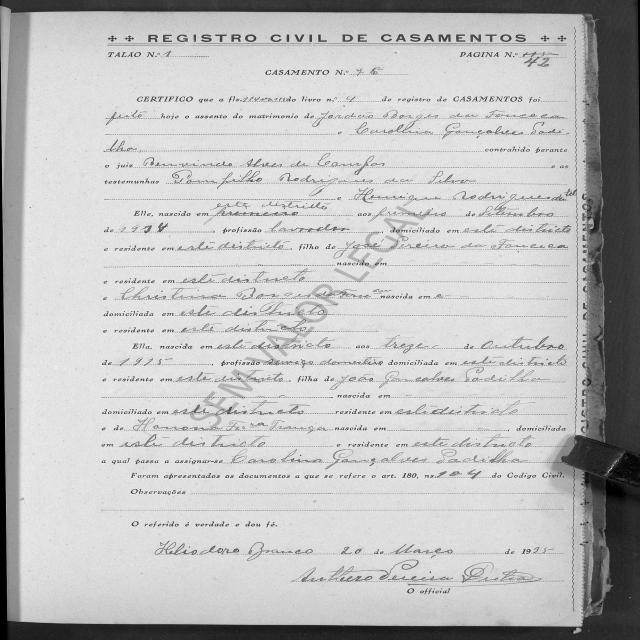 REGISTRO CIVIL DE CASAMENTOS
TALÃO N.º 1 PAGINA N.º 42
CASAMENTO N.º 76
CERTIFICO que a fls. do livro n.º 4 de registro de CASAMENTOS foi
feito hoje o assento do matrimonio de Jordão Borges da Fonceca
e Carolina Gonçalves Padi
lha contrahido perante
o juiz Benvindo Alves de Campos e as
testemunhas Pompilho Rodrigues da Silva
e Henrique Rodrigues da Sil
este districto
Elle, nascido em primeiro aos primeiro de Setembro
de 1914 profissão lavrador, domiciliado em este districto
e residente em este districto filho de José Pereira da Fonceca
nascido em
e residente em este districto
e Christina Borges nascida em e
domiciliada em este districto
e residente em este districto
Ella, nascida em este districto aos treze de Outubro
de 1915 profissão serviço domestico domiciliada em este districto
e residente em este districto, filha de João Gonçalves Padilha
nascida em
domiciliado em este districto residente em este districto
e de Honoria Frª França nascida em , domiciliada
em este districto e residente em este districto
a qual passa a assignar-se Carolina Gonçalves Padilha
Foram apresentados os documentos a que se refere o art. 180, ns. 1 2 4 do Codigo Civil.
Observações
O referido é verdade e dou fé.
Heliodoro Branco 20 de Março de 1935
Anthero Pereira Dutra
O official
SEM VALOR LEGAL
REGISTRO CIVIL DE CASAMENTOS